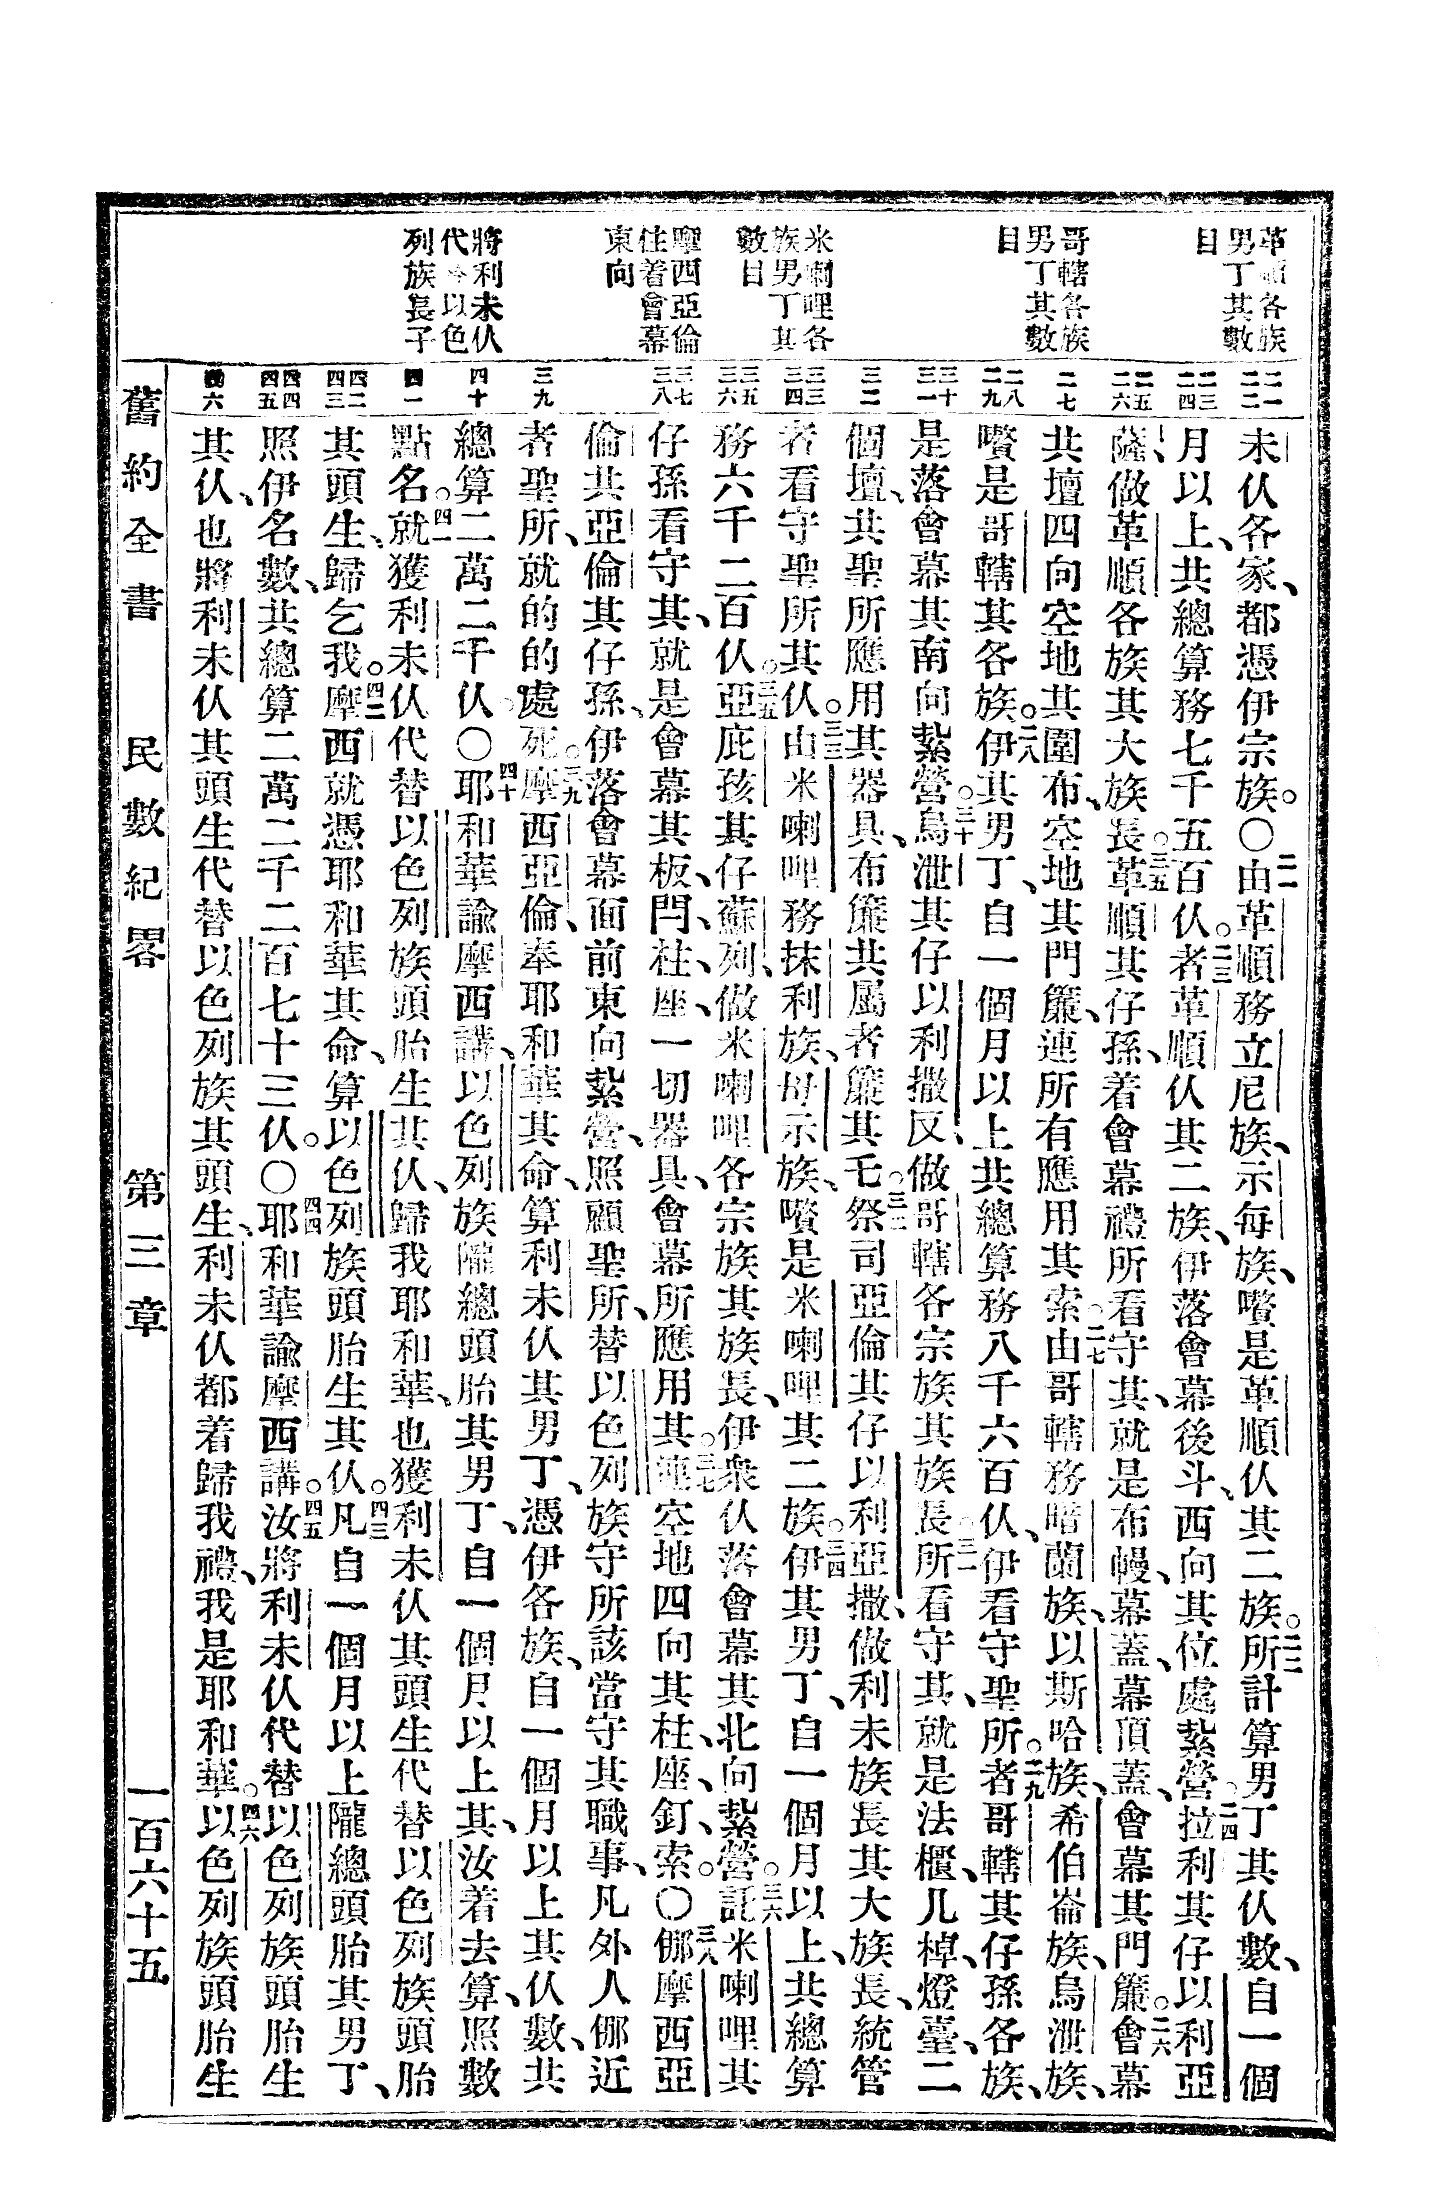 革順各族
男丁其數
目
哥轄各族
男丁其數
目
米喇哩各
族男丁其
數目
摩西亞倫
住着會幕
東向
將利未仈
代替以色
列族長子
未仈各家、都憑伊宗族。〇二一由革順務立尼族、示每族、嚽是革順仈其二族。二二所計算男丁其仈數、自一個
月以上、共總算務七千五百仈。二三者革順仈其二族、伊落會幕後斗、西向其位處紮營。二四拉利其仔以利亞
薩、做革順各族其大族長。二五革順其仔孫、着會幕禮所看守其、就是布幔、幕蓋、幕頂蓋、會幕其門簾。二六會幕
共壇四向空地其圍布、空地其門簾、連所有應用其索。二七由哥轄務暗蘭族、以斯哈族、希伯崙族、烏泄族、
嚽是哥轄其各族。二八伊其男丁、自一個月以上共總算務八千六百仈、伊看守聖所。二九者哥轄其仔孫各族、
是落會幕其南向紮營。三十烏泄其仔以利撒反、做哥轄各宗族其族長。三一所看守其、就是法櫃、几棹、燈臺、二
個壇、共聖所應用其器具、布簾共屬者簾其乇。三二祭司亞倫其仔以利亞撒、做利未族長其大族長、統管
者看守聖所其仈。三三由米喇哩務抹利族、母示族、嚽是米喇哩其二族。三四伊其男丁、自一個月以上、共總算
務六千二百仈。三五亞庇孩其仔蘇列、做米喇哩各宗族其族長、伊衆仈落會幕其北向紮營。三六託米喇哩其
仔孫看守其、就是會幕其板、閂、柱、座、一切器具、會幕所應用其。三七連空地四向其柱、座、釘、索。〇三八𠆧摩西亞
倫共亞倫其仔孫、伊落會幕面前東向紮營、照顧聖所、替以色列族守所該當守其職事、凡外人𠆧近
者聖所、就的的處死。三九摩西亞倫、奉耶和華其命、算利未仈其男丁、憑伊各族、自一個月以上其仈數、共
總算二萬二千仈。〇四十耶和華諭摩西講、以色列族隴總頭胎其男丁、自一個月以上其、汝着去算、照數
點名。四一就獲利未仈代替以色列族頭胎生其仈、歸我耶和華、也獲利未仈其頭生代替以色列族頭胎
其頭生、歸乞我。四二摩西就憑耶和華其命、算以色列族頭胎生其仈。四三凡自一個月以上隴總頭胎其男丁、
照伊名數、共總算二萬二千二百七十三仈。〇四四耶和華諭摩西講。四五汝將利未仈代替以色列族頭胎生
其仈、也將利未仈其頭生代替以色列族其頭生、利未仈都着歸我禮、我是耶和華。四六以色列族頭胎生
舊約全書 民數紀畧 第三章 一百六十五